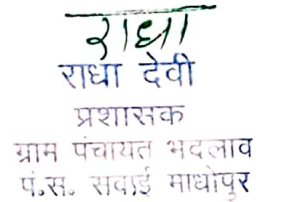 राधा
राधा देवी
प्रशासक
ग्राम पंचायत भदलाव
पं.स. सवाई माधोपुर